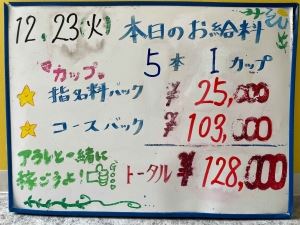 12.23(火) 本日のお給料
カップ 5本 Iカップ
指名料バック ¥25,000
コースバック ¥103,000
アラレと一緒に
稼ごうよ! トータル ¥128,000